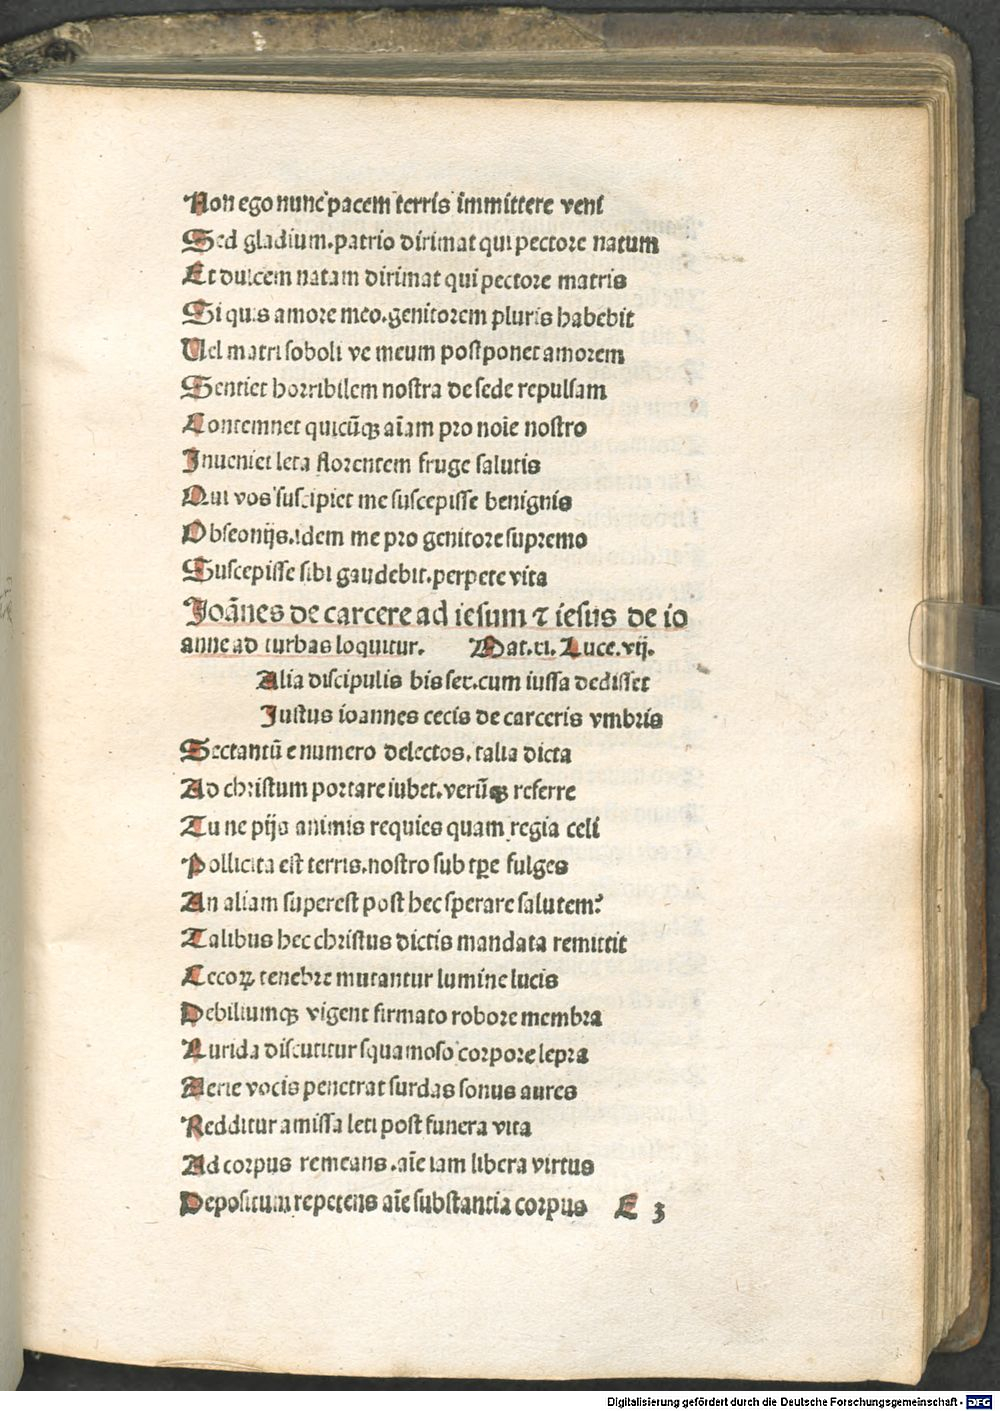 Non ego nunc pacem terris immittere veni
Sed gladium.patrio dirimat qui pectore natum
Et dulcem natam dirimat qui pectore matris
Si quis amore meo.genitorem pluris habebit
Uel matri soboli ve meum postponet amorem
Sentiet horribilem nostra de sede repulsam
Contemnet quicūqꝫ aīam pro noīe nostro
Inueniet leta florentem fruge salutis
Qui vos suscipiet me suscepisse benignis
Obseonijs.idem me pro genitore supremo
Suscepisse sibi gaudebit.perpete vita
Joānes de carcere ad iesum ⁊ iesus de io
anne ad turbas loquitur. Mat.xi. Luce.vij.
Alia discipulis bis sex.cum iussa dedisset
Justus ioannes cecis de carceris vmbris
Sectantū e numero delectos.talia dicta
Ad christum portare iubet.verūqꝫ referre
Tu ne pijs animis requies quam regia celi
Pollicita est terris.nostro sub tꝑe fulges
An aliam superest post hec sperare salutem?
Talibus hec christus dictis mandata remittit
Cecoꝝ tenebre mutantur lumine lucis
Debiliumqꝫ vigent firmato robore membra
Lurida discutitur squamoso corpore lepra
Aerie vocis penetrat surdas sonus aures
Redditur amissa leti post funera vita
Ad corpus remeans.aīe iam libera virtus
Depositum repetens aīe substantia corpus E 3
Digitalisierung gefördert durch die Deutsche Forschungsgemeinschaft - DFG